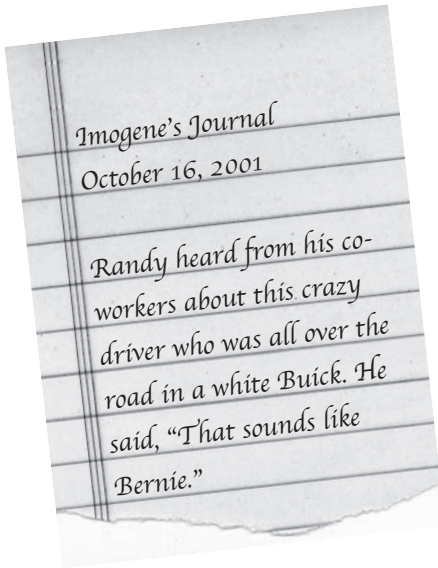 Imogene's Journal
October 16, 2001
Randy heard from his co-
workers about this crazy
driver who was all over the
road in a white Buick. He
said, “That sounds like
Bernie.”